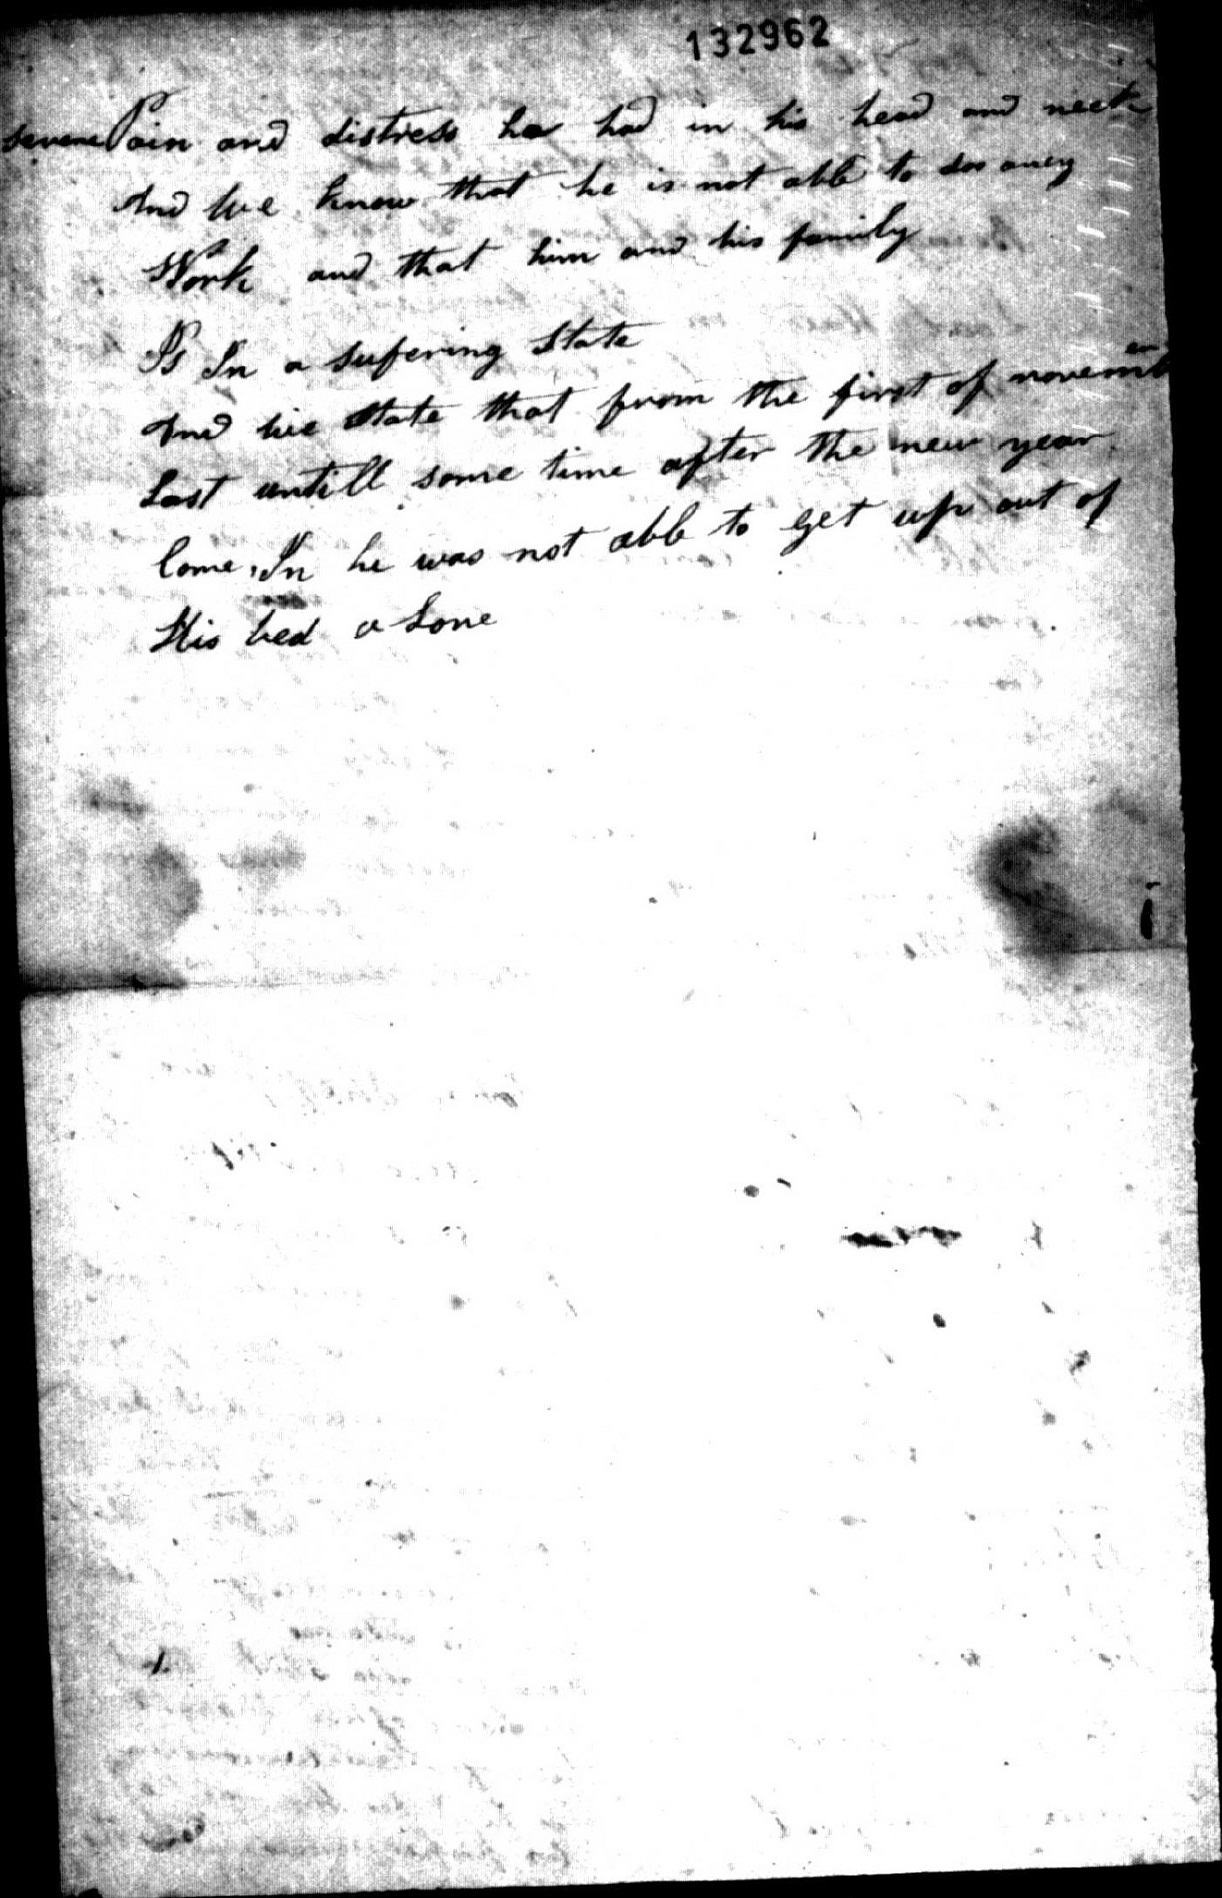 132962
severe Pain and distress he had in his head and neck
And we know that he is not able to doo aney
Work and that him and his family
Is In a sufering State
And wie state that from the first of novemb er
Last untill some time after the new year
Come, In he was not able to get up out of
His bed a Lone